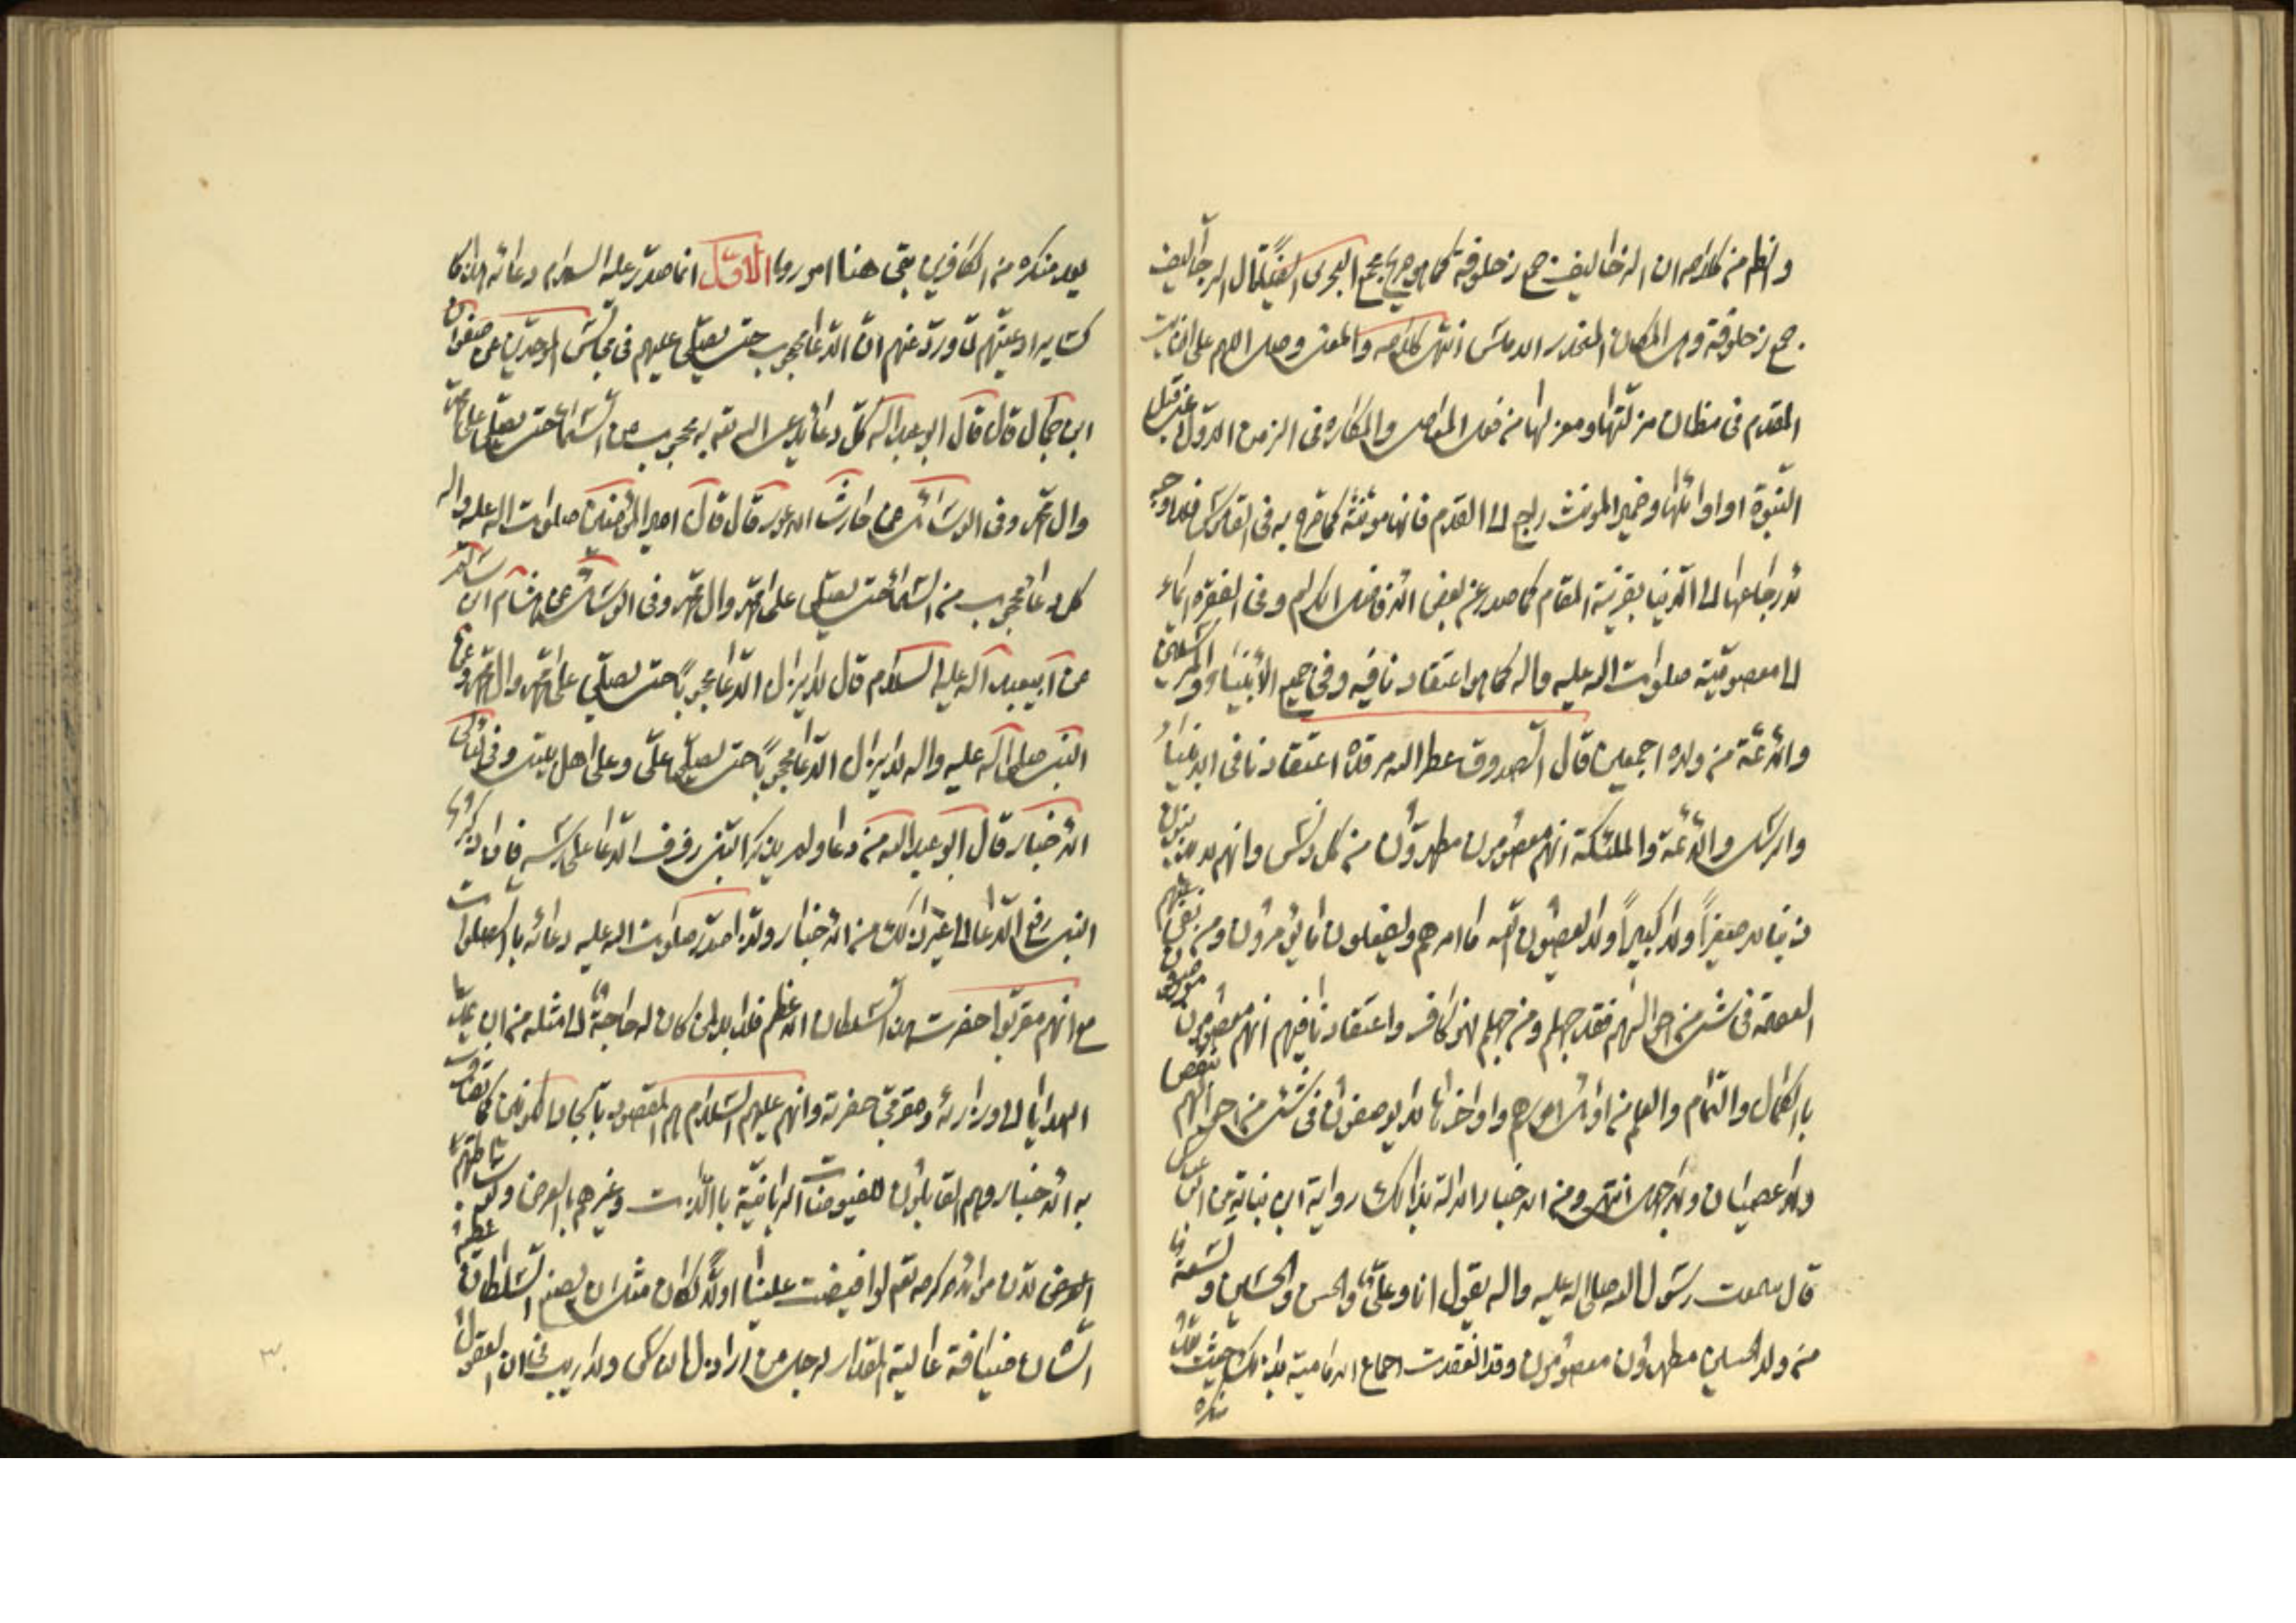 من كلامه ان الزحاليف جمع زحلوفة كما هو صريح مجمع البحرين ايضا قال الزحاليف
جمع زحلوقة وهي المكان المنحدر الاملس انتهى كلامه والمعنى وصل اللهم على الثابت
القدم في مظان مزلتها ومعزلها من فعل المعاصي والمكاره في الزمن الاول اعني قبل
النبوة او اوائلها وضمير المونث راجع الى القدم فانها مونثة كما صرح به في القاموس فلا وجه
لارجاعها الى الدنيا بقرينة المقام كما صدر عن بعض الافاضل الكرام وفي الفقرة ايماء
الى معصوميته صلوات الله عليه واله كما هو اعتقادنا فيه وفي جميع الأنبياء والمرسلين
والائمة من ولده اجمعين قال الصدوق عطر الله مرقده اعتقادنا في الانبياء
والرسل والائمة والملئكة انهم معصومون مطهرون من كل دنس وانهم لا يذنبون
ذنبا لا صغيرا ولا كبيرا ولا يعصون الله ما امرهم ويفعلون ما يؤمرون ومن نفى عنهم
العصمة في شئ من احوالهم فقد جهلهم ومن جهلهم فهو كافر واعتقادنا فيهم انهم معصومون موصوفون
بالكمال والتمام والعلم من اوائل امورهم واواخرها لا يوصفون في شئ من احوالهم بنقص
ولا عصيان ولا جهل انتهى ومن الاخبار الدالة بذلك رواية ابن نباتة عن ابن عباس
قال سمعت رسول الله صلى الله عليه واله يقول انا وعلي والحسن والحسين وتسعة
من ولد الحسين مطهرون معصومون وقد انعقدت اجماع الامامية بذلك بحيث
منكره
يعد منكره من الكافرين بقى هنا امور الاول انما صدر عليه السلام دعائه
كساير ادعيتهم لما ورد عنهم ان الدعا محجوب حتى يصلي عليهم في مجالس عن صفوان
ابن جمال قال قال ابو عبد الله كل دعا يدعى الله به محجوب عن السماء حتى يصلى على محمد
وال محمد وفي الوسائل عن حارث الاعور قال قال امير المؤمنين صلوات الله عليه واله
كل دعا محجوب من السماء حتى يصلى على محمد وال محمد وفي الوسائل عن هشام ابن سالم
عن ابيعبد الله عليه السلام قال لا يزال الدعا محجوبا حتى يصلي على محمد وال محمد وعن
النبي صلى الله عليه واله لا يزال الدعا محجوبا حتى يصلى علي وعلى اهل بيتي وفي
الاخبار قال ابو عبد الله من دعا ولم يذكر النبي رفرف الدعا على راسه فاذا ذكر
النبي رفع الدعا الى غير ذلك من الاخبار ولذا صدر صلوات الله عليه دعائه بالصلوات
مع انهم مقربوا حضرت السلطان الاعظم فلا بد لمن كان له حاجة الى مثله من ان
الهدايا الى وزرائه ومقربي حضرته وانهم عليهم السلام هم المقصود بايجاد الكونين كما
به الاخبار وهم القابلون للفيوضات الربانية بالذات وغيرهم بالعرض
لو افيضت علينا اولا لكان مثل ان يصنع السلطان عظيم
الشان ضيافة عالية المقدار لرجل من اراذل الناس ولا ريب في ان العقول